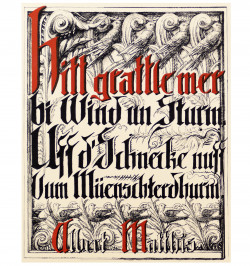 Hitt grattle mer
bi Wind un Sturm
Uff d'Schnecke nuff
Vum Müenschterdhurm.
Albert Matthis